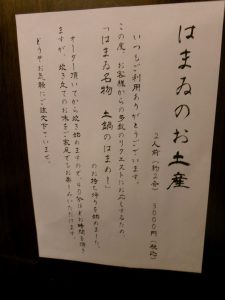 はまゐのお土産
2人前(約2合) 3000円(税込)
いつもご利用ありがとうございます。
この度、お客様からの多数のリクエストにお応えするため、
「はまゐ名物 土鍋のはまめし」
のお持ち帰りを始めました。
オーダー頂いてから炊き始めますので、40分ほどお時間を頂き
ますが、炊き立てのお味をご家庭でもお楽しみいただけます。
どうぞお気軽にご注文下さいませ。